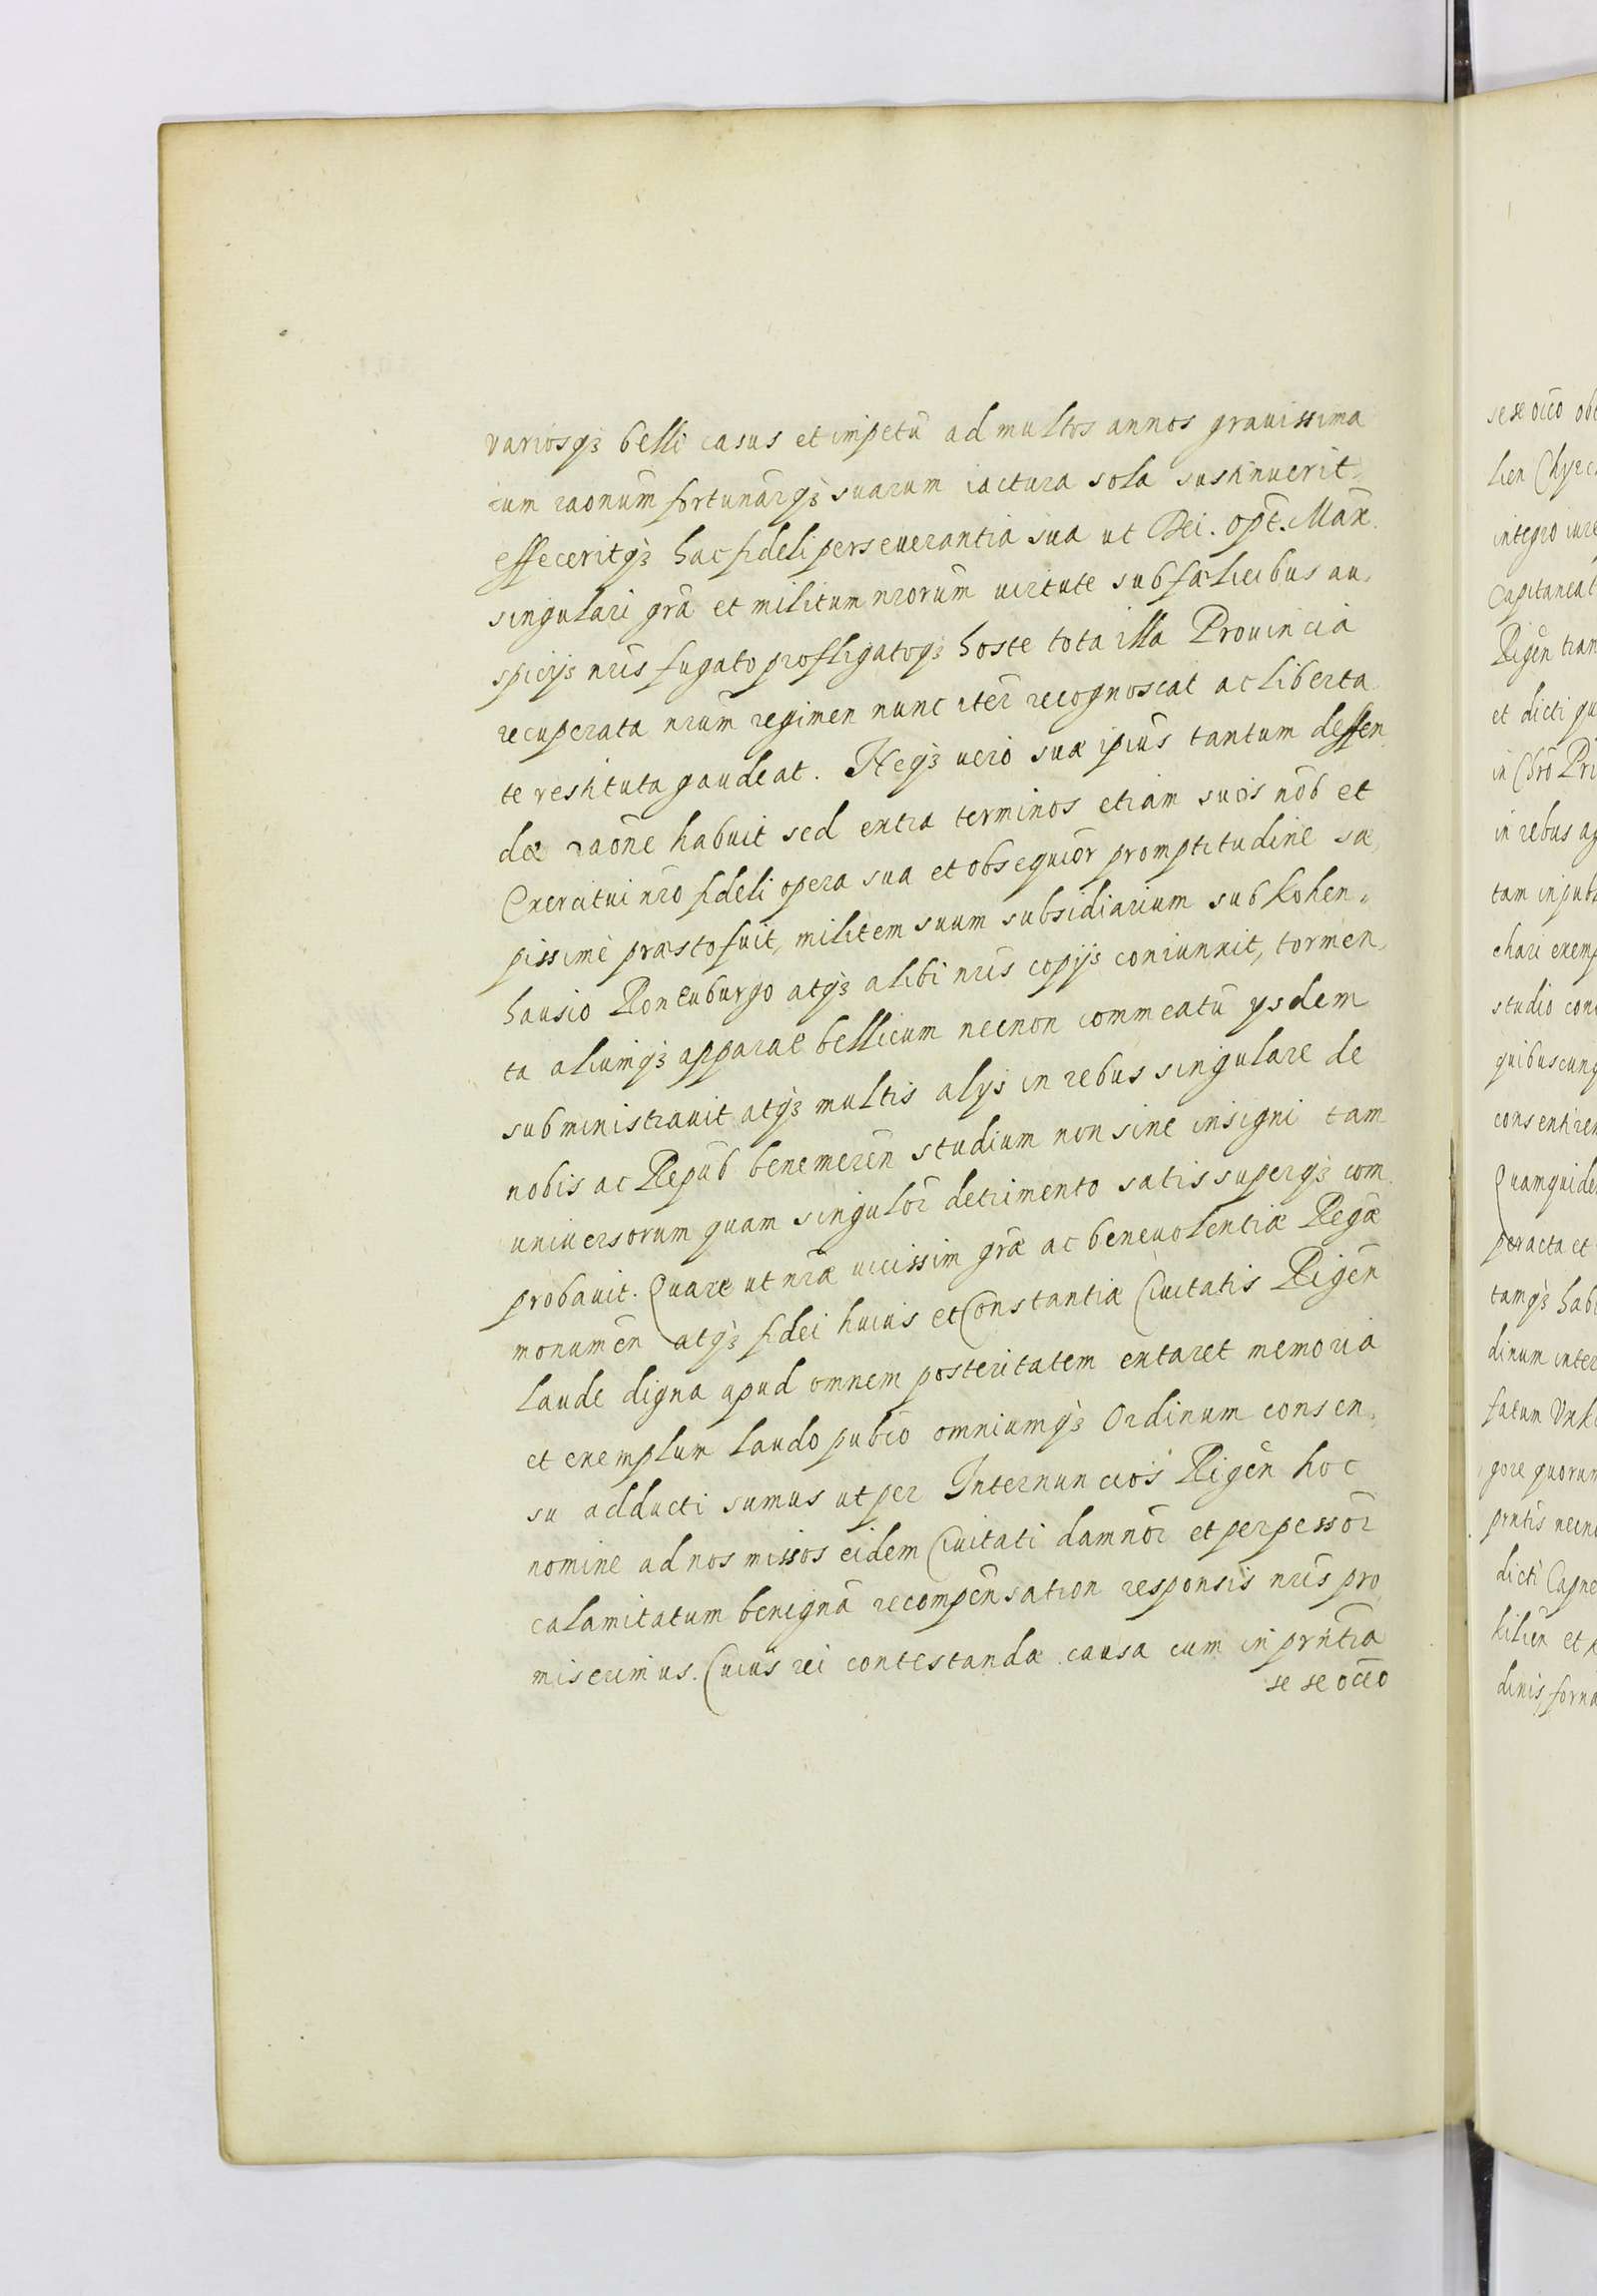 variosq₃ belli casus et impetū ad multos annos grauissima
cum raonum fortunar̄q₃ suarum iactura sola sustinuerit
effeceritq₃ hac fideli perseuerantia sua ut Dei. Opt̄. Max̄.
singulari grā et militum nrorūm uirtute sub fælicibus au,
spicijs nris fugato profligatoq₃ hoste tota illa Prouincia
recuperata nrūm regimen nunc iter̄ recognoscat ac liberta
te restituta gaudeat. Neq₃ vero suæ ipius tantum deffen
dæ raōne habuit sed extra terminos etiam suos nōb et
Exercitui nrō fideli opera sua et obsequiōr promptitudine sæ,
pissime præsto fuit, militem suum subsidiarium sub Kohen,,
hausio Ronenburgo atq₃ alibi nris copijs coniunxit, tormen,
ta aliumq₃ apparat bellicum necnon commeatū ysdem
subministrauit atq₃ multis alys in rebus singulare de
nobis ac Repūb benemerēn studium non sine insigni tam
universorum quam singulōr detrimento satis superq₃ com,
probavit. Quare ut nræ vicissim græ ac benevolentiæ Regæ
monumēn atq₃ fidei huius et Constantiæ Civitatis Rigēn
laude digna apud omnem posteritatem extaret memoria
et exemplum laudo pubco omniumq₃ Ordinum consen,
su adducti sumus ut per Internuncios Rigēn hoc
nomine ad nos missos eidem Civitati damnōr et perpessōr
calamitatum benignā recompēnsation responsis nris pro
miserimus. Cuius rei contestandæ causa cum in prntia
se se octo

se se octo ob
lien Chyrc
integro iure
Capitaneat
Rigēn tran
et dicti qu
in Chrō Pri
in rebus ag
tam in pub
chari exemp
studio con
quibuscunq
consentiren
Quam quide
peracta et
tamq₃ habi
dinum inter
fatum
gore quorum
prntis necn
dicti Capne
kilien et
dinis forma